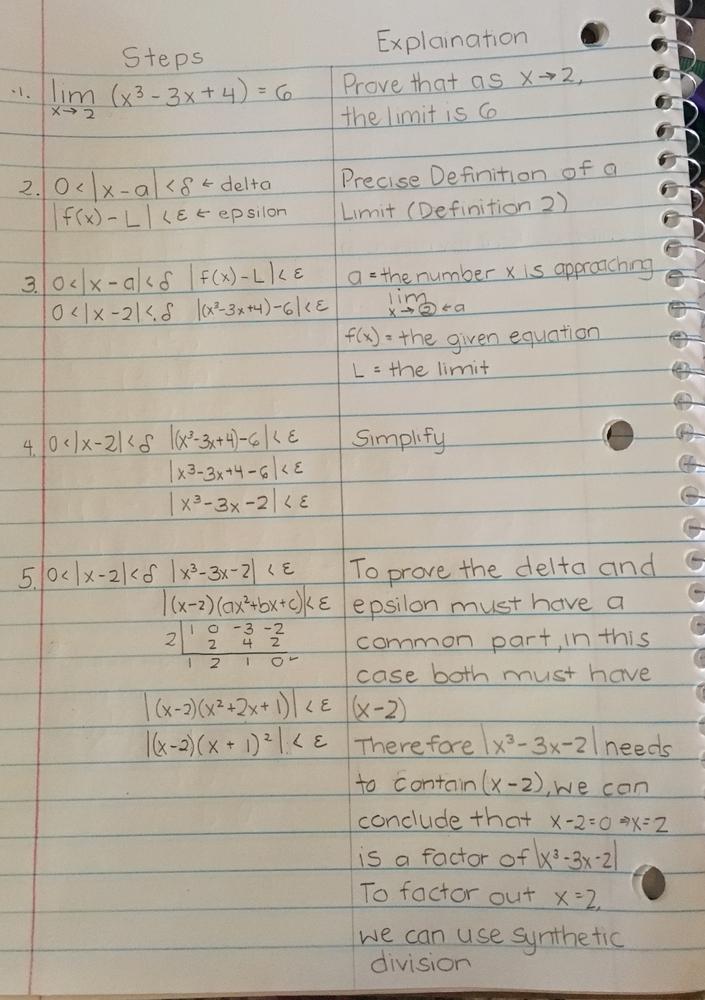 Steps
Explaination
1. lim x→2 (x³ - 3x + 4) = 6
Prove that as x → 2,
the limit is 6
2. 0 < |x - a| < δ ← delta
|f(x) - L| < ε ← epsilon
Precise Definition of a
Limit (Definition 2)
3. 0 < |x - a| < δ |f(x) - L| < ε
0 < |x - 2| < δ |(x³ - 3x + 4) - 6| < ε
a = the number x is approaching
lim x→② ← a
f(x) = the given equation
L = the limit
4. 0 < |x - 2| < δ |(x³ - 3x + 4) - 6| < ε
|x³ - 3x + 4 - 6| < ε
|x³ - 3x - 2| < ε
Simplify
5. 0 < |x - 2| < δ |x³ - 3x - 2| < ε
|(x - 2)(ax² + bx + c)| < ε
2 | 1 0 -3 -2
2 4 2
1 2 1 0
|(x - 2)(x² + 2x + 1)| < ε
|(x - 2)(x + 1)²| < ε
To prove the delta and
epsilon must have a
common part, in this
case both must have
(x - 2)
Therefore |x³ - 3x - 2| needs
to contain (x - 2), we can
conclude that x - 2 = 0 ⇒ x = 2
is a factor of |x³ - 3x - 2|
To factor out x = 2,
we can use synthetic
division